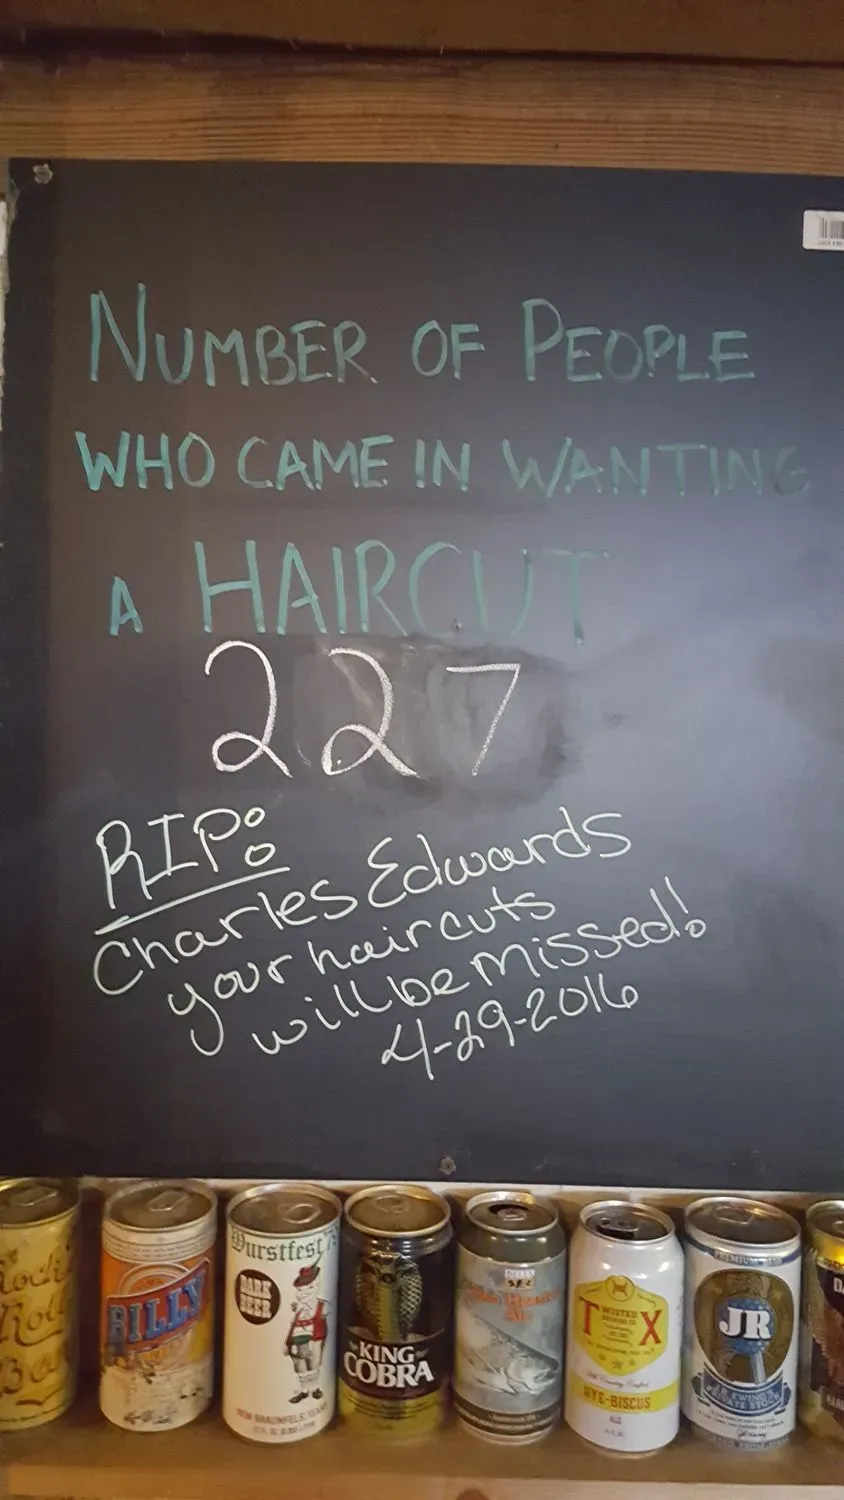 NUMBER OF PEOPLE
WHO CAME IN WANTING
A HAIRCUT
227
RIP:
Charles Edwards
your haircuts
will be missed!
4-29-2016
Rock
Roll
BILLY
Wurstfest
DARK
BEER
NEW BRAUNFELS, TEXAS
KING
COBRA
BELL'S
Ale
TWISTED
T X
RYE-BISCUS
ALE
PREMIUM BEER
JR
J.R. EWING'S
PRIVATE STOCK